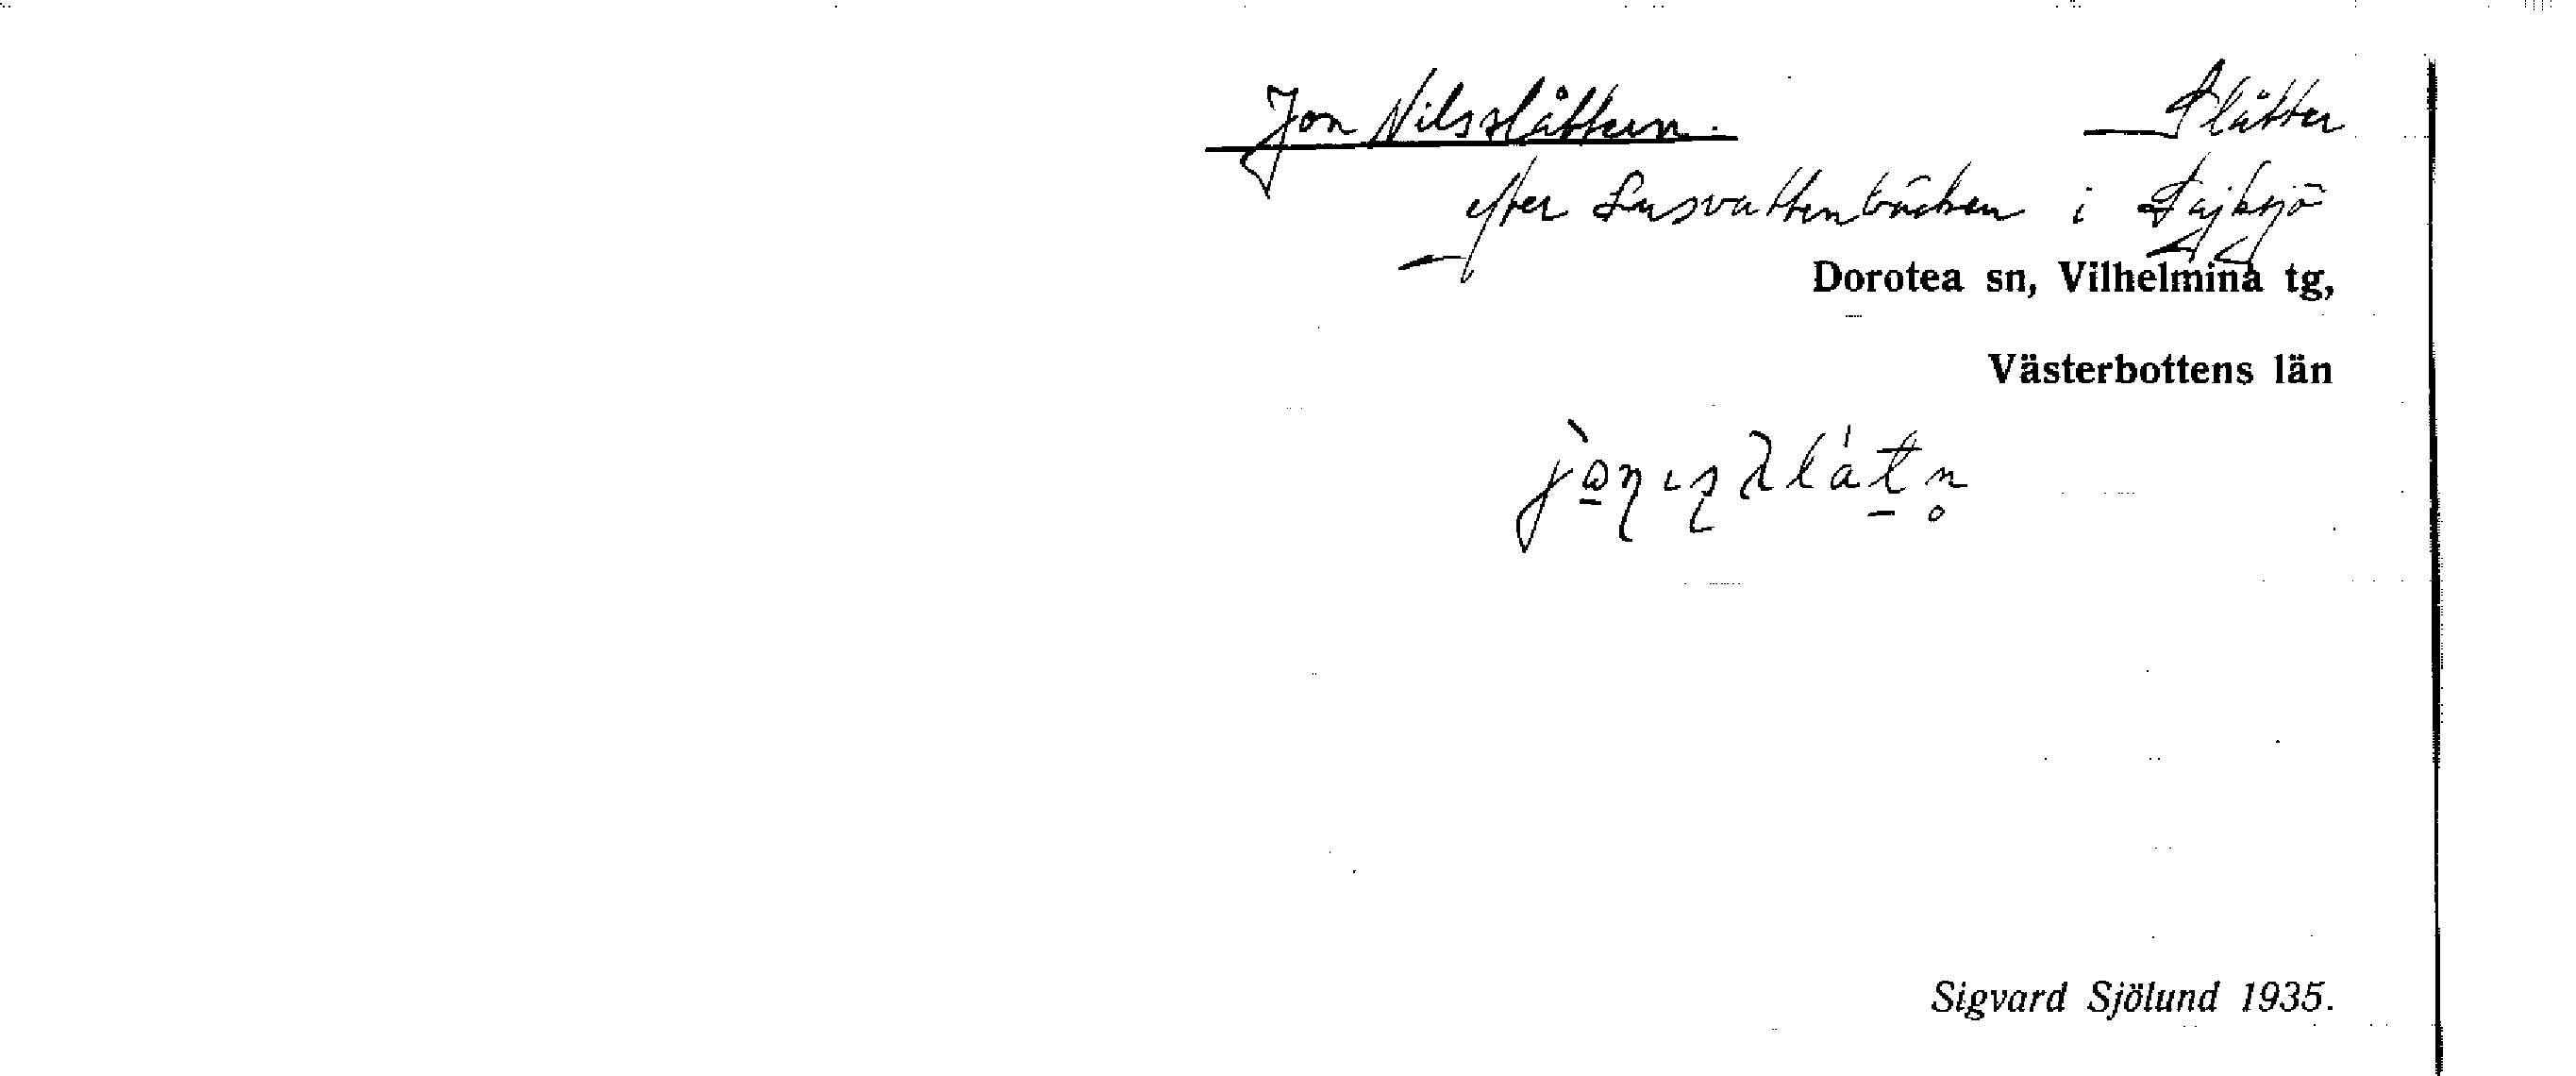 Jon Nilsslåtten. Slåtter
efter Lusvattenbäcken i Sajksjö
Dorotea sn, Vilhelmina tg,
Västerbottens län
Sigvard Sjölund 1935.